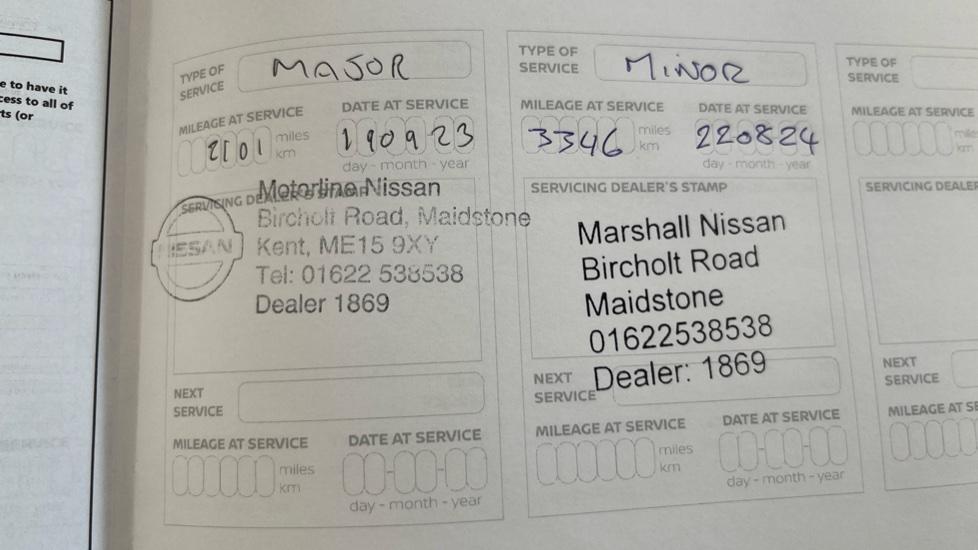 e to have it
cess to all of
ts (or
TYPE OF SERVICE MAJOR
MILEAGE AT SERVICE DATE AT SERVICE
2101 miles km 190923
day - month - year
SERVICING DEALER'S STAMP
NISSAN
Motorline Nissan
Bircholt Road, Maidstone
Kent, ME15 9XY
Tel: 01622 538538
Dealer 1869
NEXT SERVICE
MILEAGE AT SERVICE DATE AT SERVICE
miles km
day - month - year
TYPE OF SERVICE MINOR
MILEAGE AT SERVICE DATE AT SERVICE
3346 miles km 220824
day - month - year
SERVICING DEALER'S STAMP
Marshall Nissan
Bircholt Road
Maidstone
01622538538
Dealer: 1869
NEXT SERVICE
MILEAGE AT SERVICE DATE AT SERVICE
miles km
day - month - year
TYPE OF SERVICE
MILEAGE AT SERVICE
km
SERVICING DEALER
NEXT SERVICE
MILEAGE AT SE